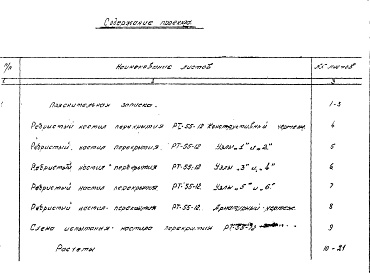 Содержание проекта
п/п Наименование листов №№ листов
1 2 3
Пояснительная записка. 1-3
Ребристый настил перекрытия РТ-55-12 Конструктивный чертеж 4
Ребристый настил перекрытия. РТ-55-12. Узлы „1" и „2" 5
Ребристый настил перекрытия РТ-55-12 Узлы „3" и „4" 6
Ребристый настил перекрытия РТ-55-12. Узлы „5" и „6" 7
Ребристый настил перекрытия РТ-55-12. Арматурный чертеж 8
Схема испытания настила перекрытия РТ-55-12 9
Расчеты 10-21